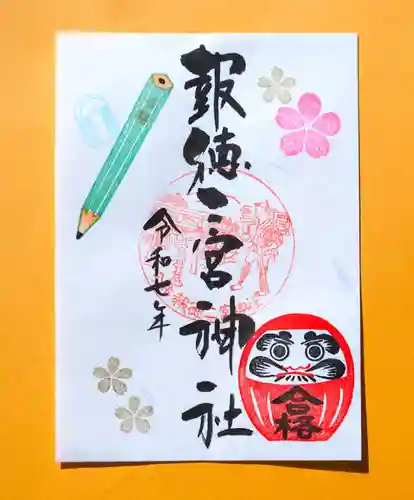 報徳二宮神社
令和七年
合格